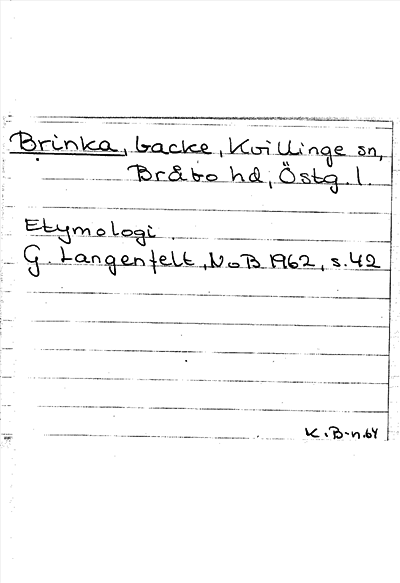 Brinka, backe, Kvillinge sn,
Bråbo hd, Östg. l.
Etymologi.
G. Langenfelt, NoB 1962, s. 42
K. B-n. 64